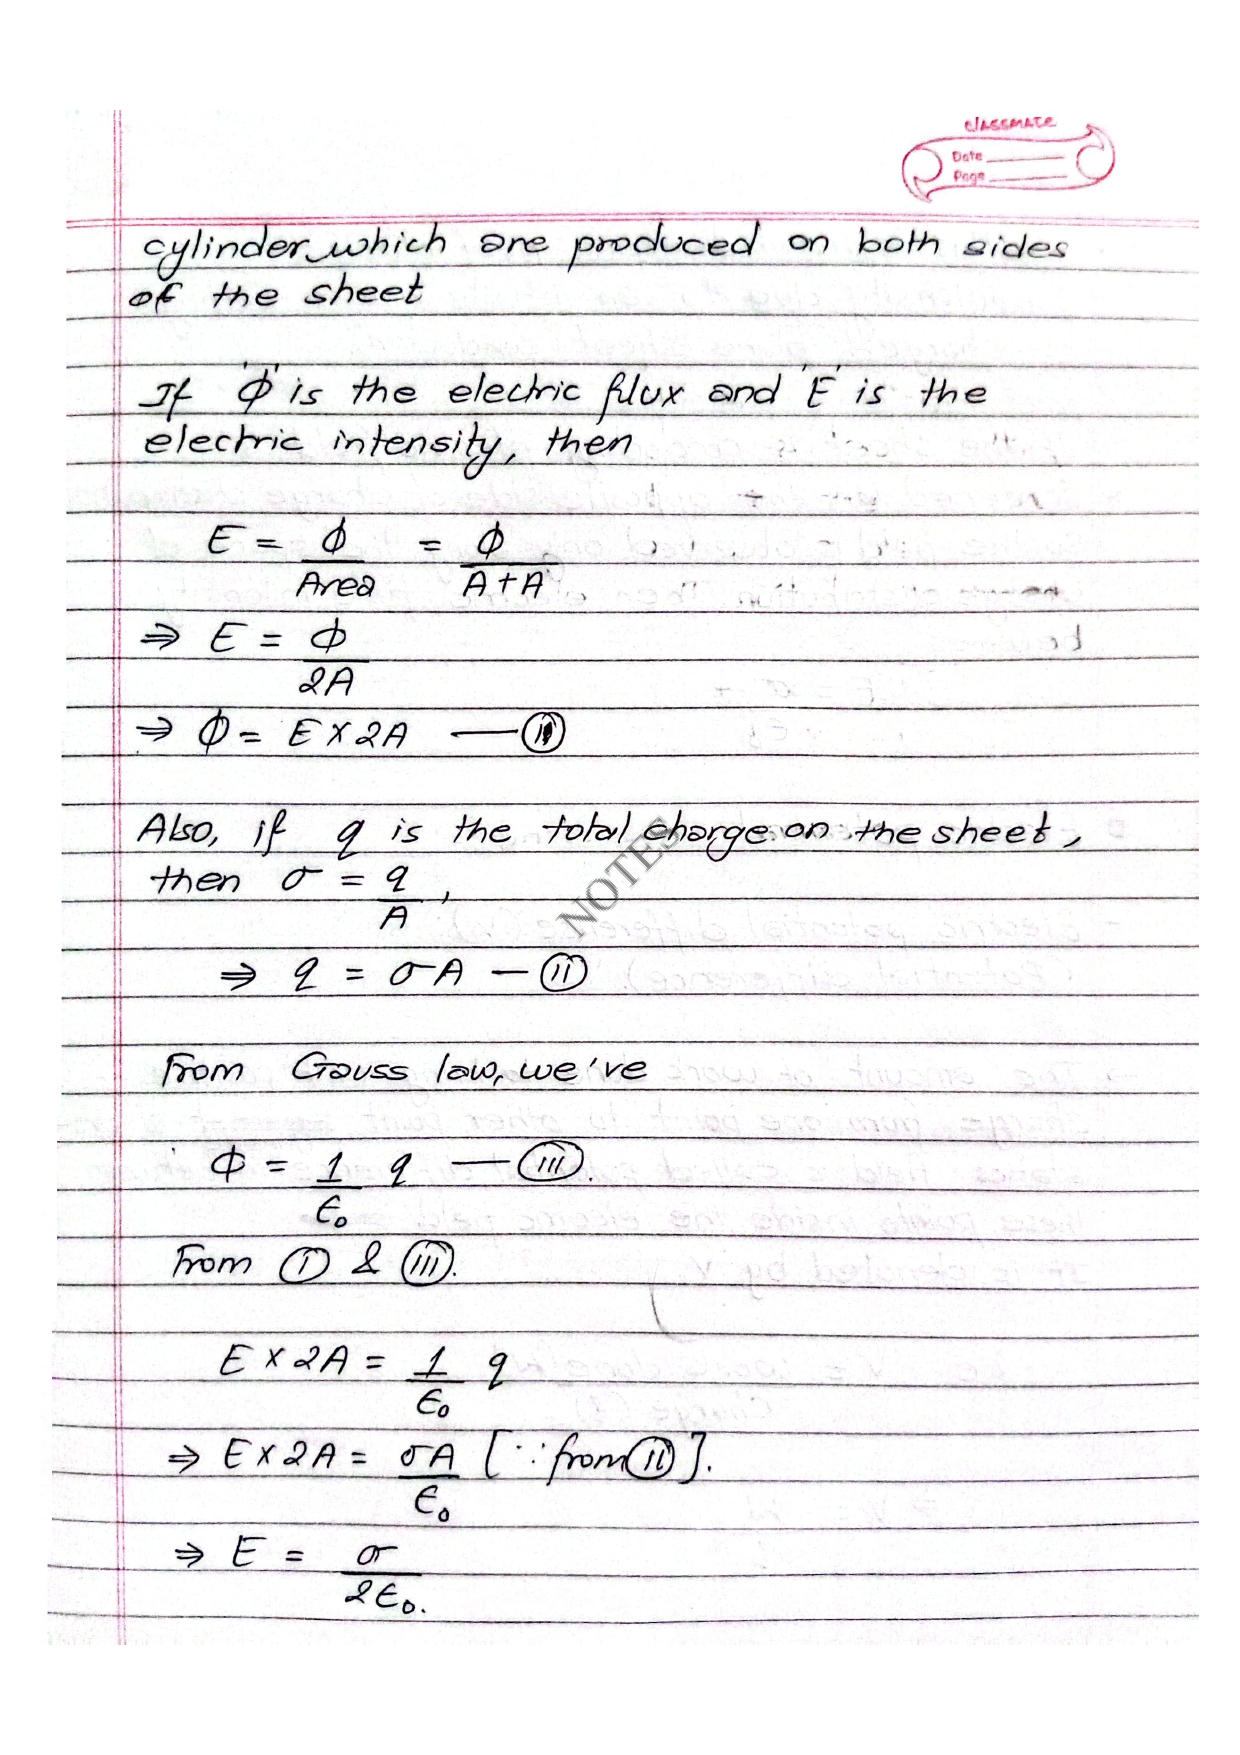 classmate
Date
Page
cylinder which are produced on both sides
of the sheet
If 'Φ' is the electric flux and 'E' is the
electric intensity, then
E = Φ/Area = Φ/A+A
⇒ E = Φ/2A
⇒ Φ = E×2A — (i)
Also, if q is the total charge on the sheet,
then σ = q/A,
⇒ q = σA — (ii)
NOTES
From Gauss law, we've
Φ = 1/ϵ₀ q — (iii).
From (i) & (iii).
E×2A = 1/ϵ₀ q
⇒ E×2A = σA/ϵ₀ [∵ from (ii)].
⇒ E = σ/2ϵ₀.